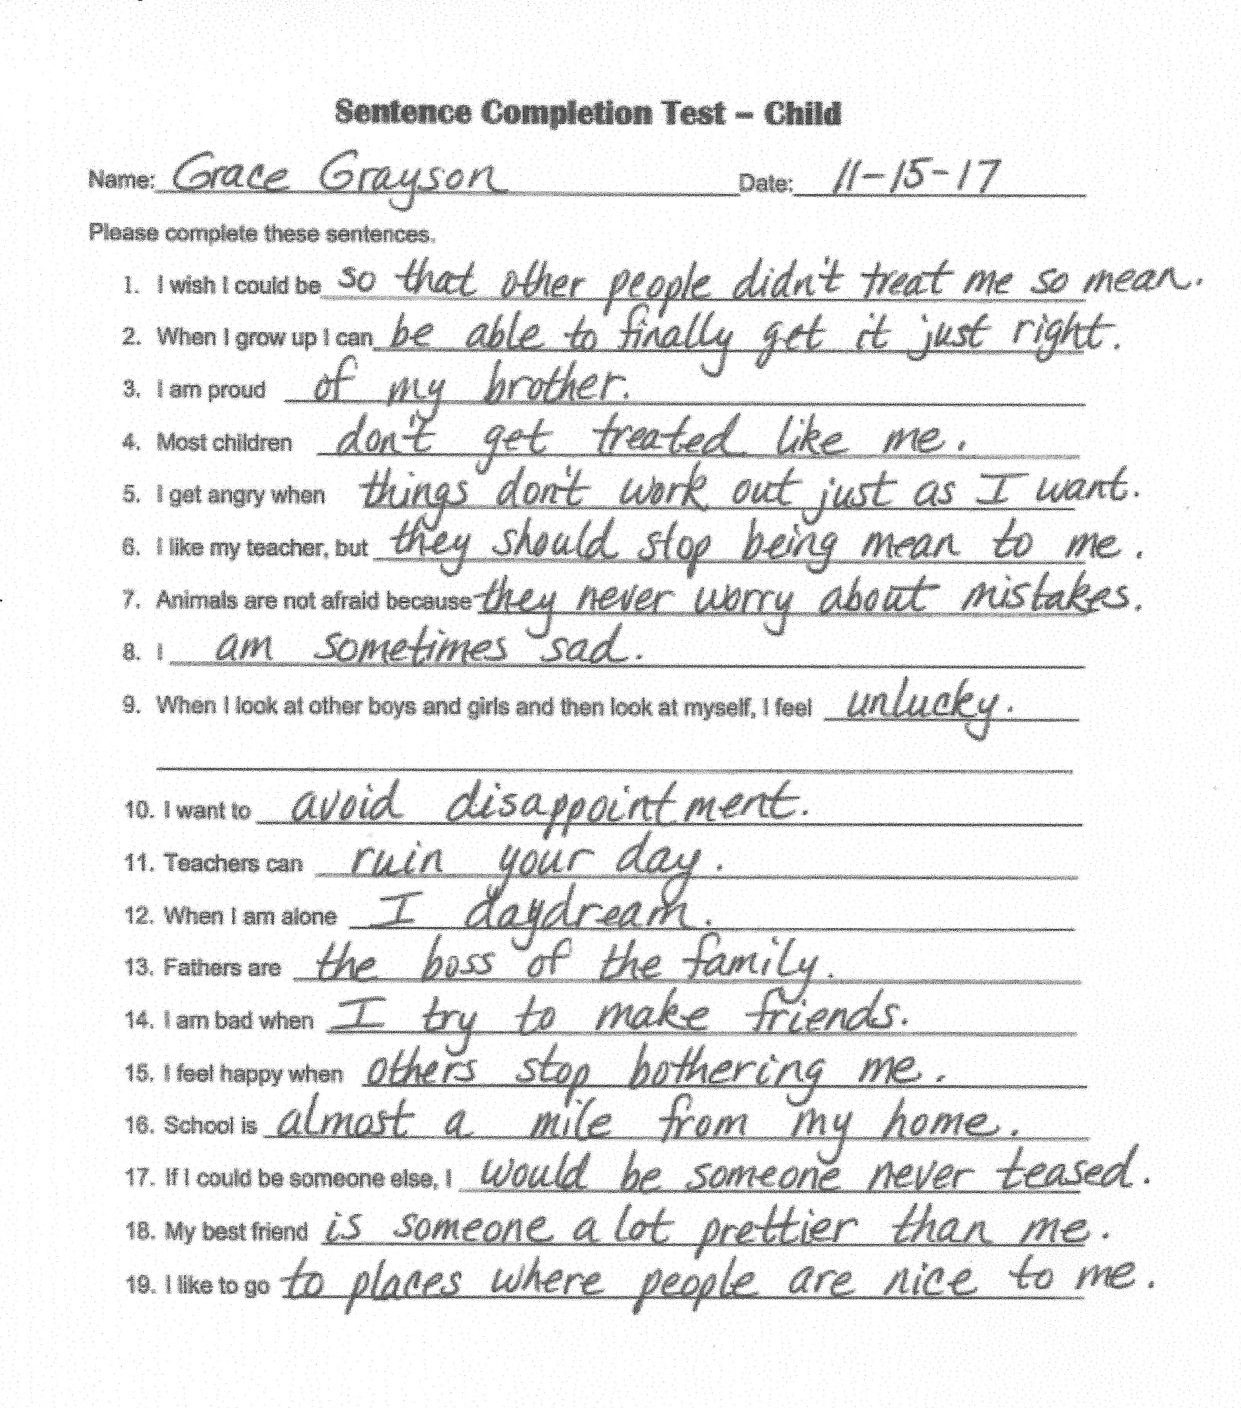 Sentence Completion Test – Child
Name: Grace Grayson Date: 11-15-17
Please complete these sentences.
1. I wish I could be so that other people didn't treat me so mean.
2. When I grow up I can be able to finally get it just right.
3. I am proud of my brother.
4. Most children don't get treated like me.
5. I get angry when things don't work out just as I want.
6. I like my teacher, but they should stop being mean to me.
7. Animals are not afraid because they never worry about mistakes.
8. I am sometimes sad.
9. When I look at other boys and girls and then look at myself, I feel unlucky.
10. I want to avoid disappointment.
11. Teachers can ruin your day.
12. When I am alone I daydream.
13. Fathers are the boss of the family.
14. I am bad when I try to make friends.
15. I feel happy when others stop bothering me.
16. School is almost a mile from my home.
17. If I could be someone else, I would be someone never teased.
18. My best friend is someone a lot prettier than me.
19. I like to go to places where people are nice to me.